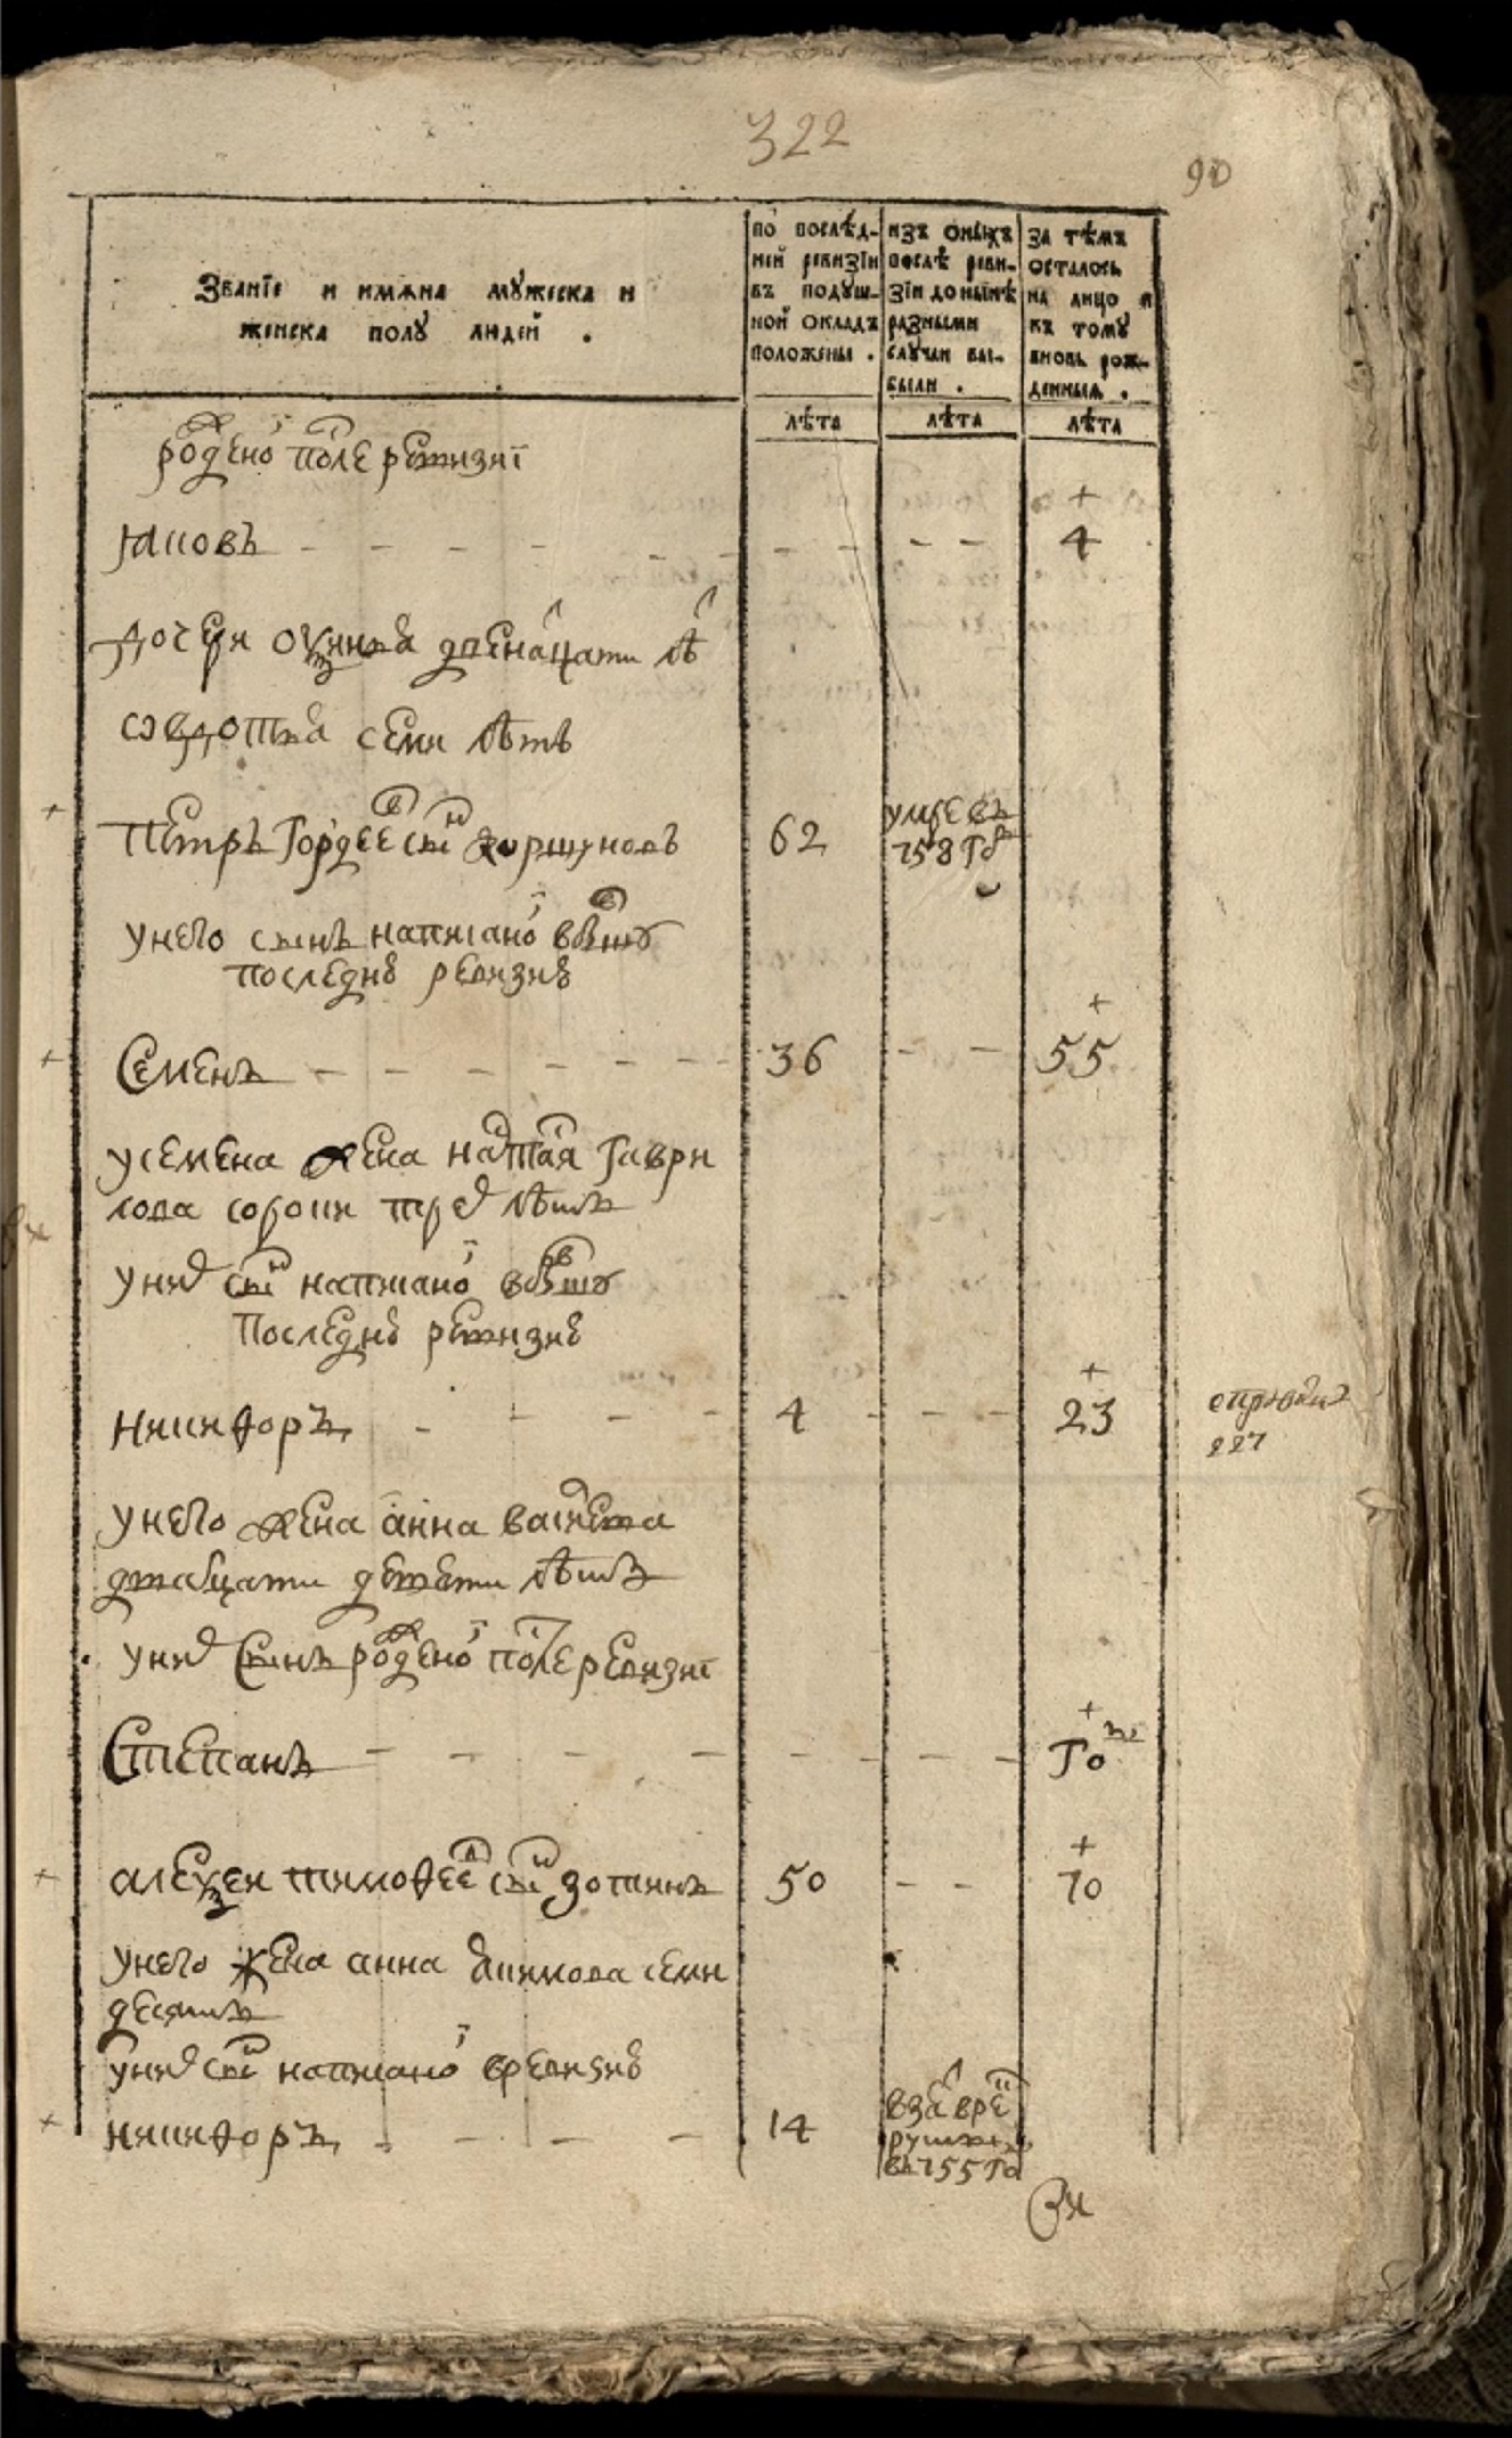 322
90
Званїе и имѧна мꙋжеска и
женска полꙋ людей .
по послѣд-
ней ревизїи
въ подꙋш-
ной окладъ
положены .
изъ оныхъ
послѣ реви-
зїи до нынѣ
разными
слꙋчаи вы-
были .
за тѣмъ
осталось
на лицо и
къ томꙋ
вновь рож-
денныѧ .
лѣта
лѣта
лѣта
рожденої после ревизиї
Яковъ - - - - - - - - - 4
дочери двенатцати лѣт
овдотья семи лѣтъ
Петръ Гордеевъ сынъ Коршуновъ 62 умре въ
758 году
унего сынъ написаної въбывшую
последнюю ревизию
Семенъ - - - - - - 36 - - 55
усемена жена настасья Гаври
лова сорокъ трех лѣтъ
уних сынъ написаної въбывшую
Последнюю ревизию
Никифоръ - - - - 4 - - - 23
227
унего жена анна васильева
дватцати девети лѣтъ
уних Сынъ рожденої после ревизиї
Степанъ - - - - - - - - Годъ
алексеи тимофеевъ сынъ зотинъ 50 - - 70
унего жена анна якимова семи
десятъ
уних сынъ написаної вревизию
никифоръ - - - - 14 взят врек
руты
въ 755 го